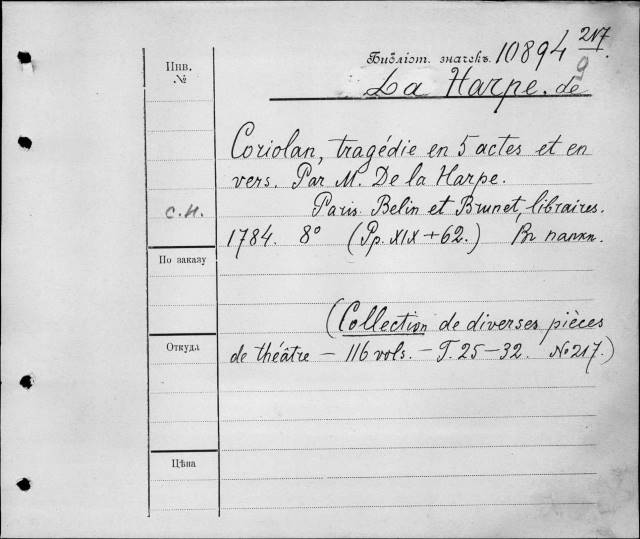 Библіот. значекъ. 10894 217
La Harpe. de
Инв.
№
Coriolan, tragédie en 5 actes et en
vers. Par M. De la Harpe.
с.н.
Paris. Belin et Brunet, libraires.
1784. 8° (Pp. XIX + 62.) Въ папкѣ.
По заказу
(Collection de diverses pièces
Откуда
de théâtre — 116 vols. — T. 25—32. № 217.)
Цѣна